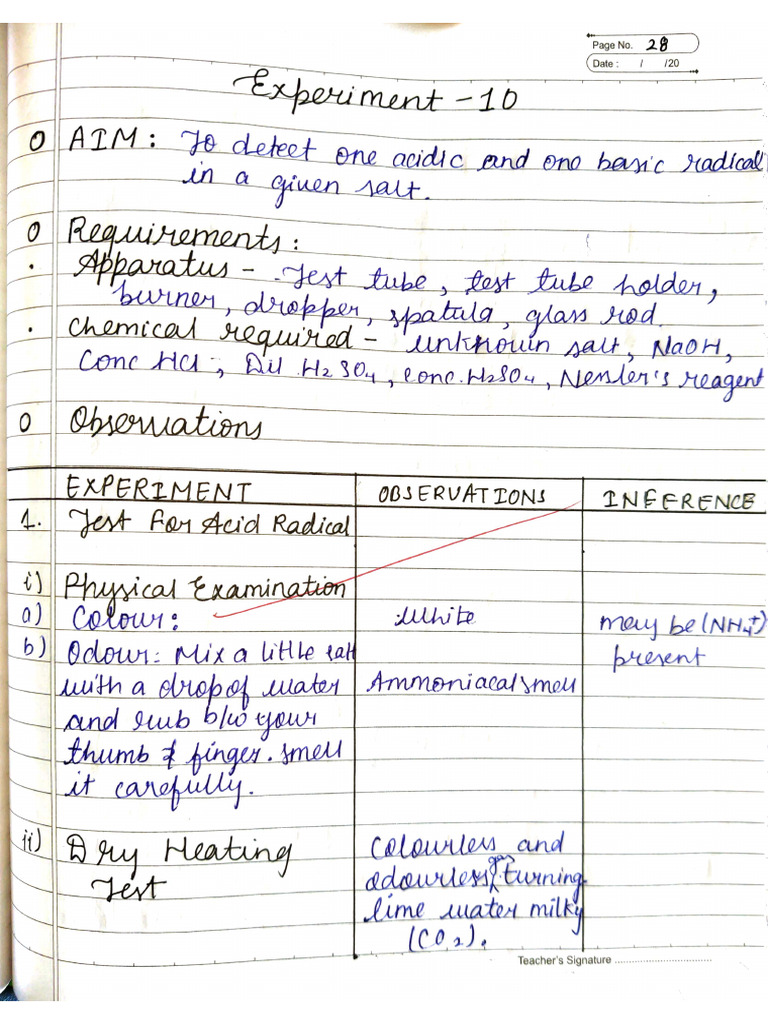 Page No. 28
Date : / /20
Experiment - 10
O AIM : To detect one acidic and one basic radical
in a given salt.
O Requirements :
. Apparatus - Test tube, test tube holder,
burner, dropper, spatula, glass rod.
. Chemical required - unknown salt, NaOH,
Conc HCl, Dil H2SO4, conc. H2SO4, Nessler's reagent
O Observations
EXPERIMENT OBSERVATIONS INFERENCE
1. Test For Acid Radical
i) Physical Examination
a) Colour : White may be (NH4+)
present
b) Odour: Mix a little salt
with a drop of water Ammoniacal smell
and rub b/w your
thumb & finger. smell
it carefully.
ii) Dry Heating Colourless and
Test odourless gas turning
lime water milky
(CO2).
Teacher's Signature